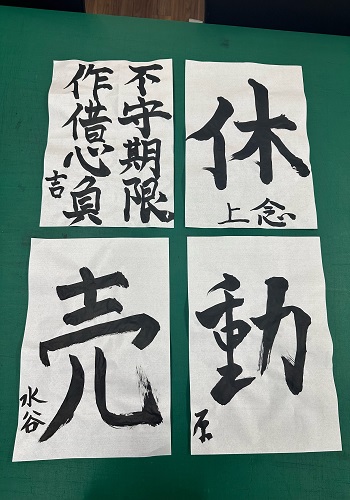 不守期限
作借心負
吉
休
上念
売
水谷
動
原